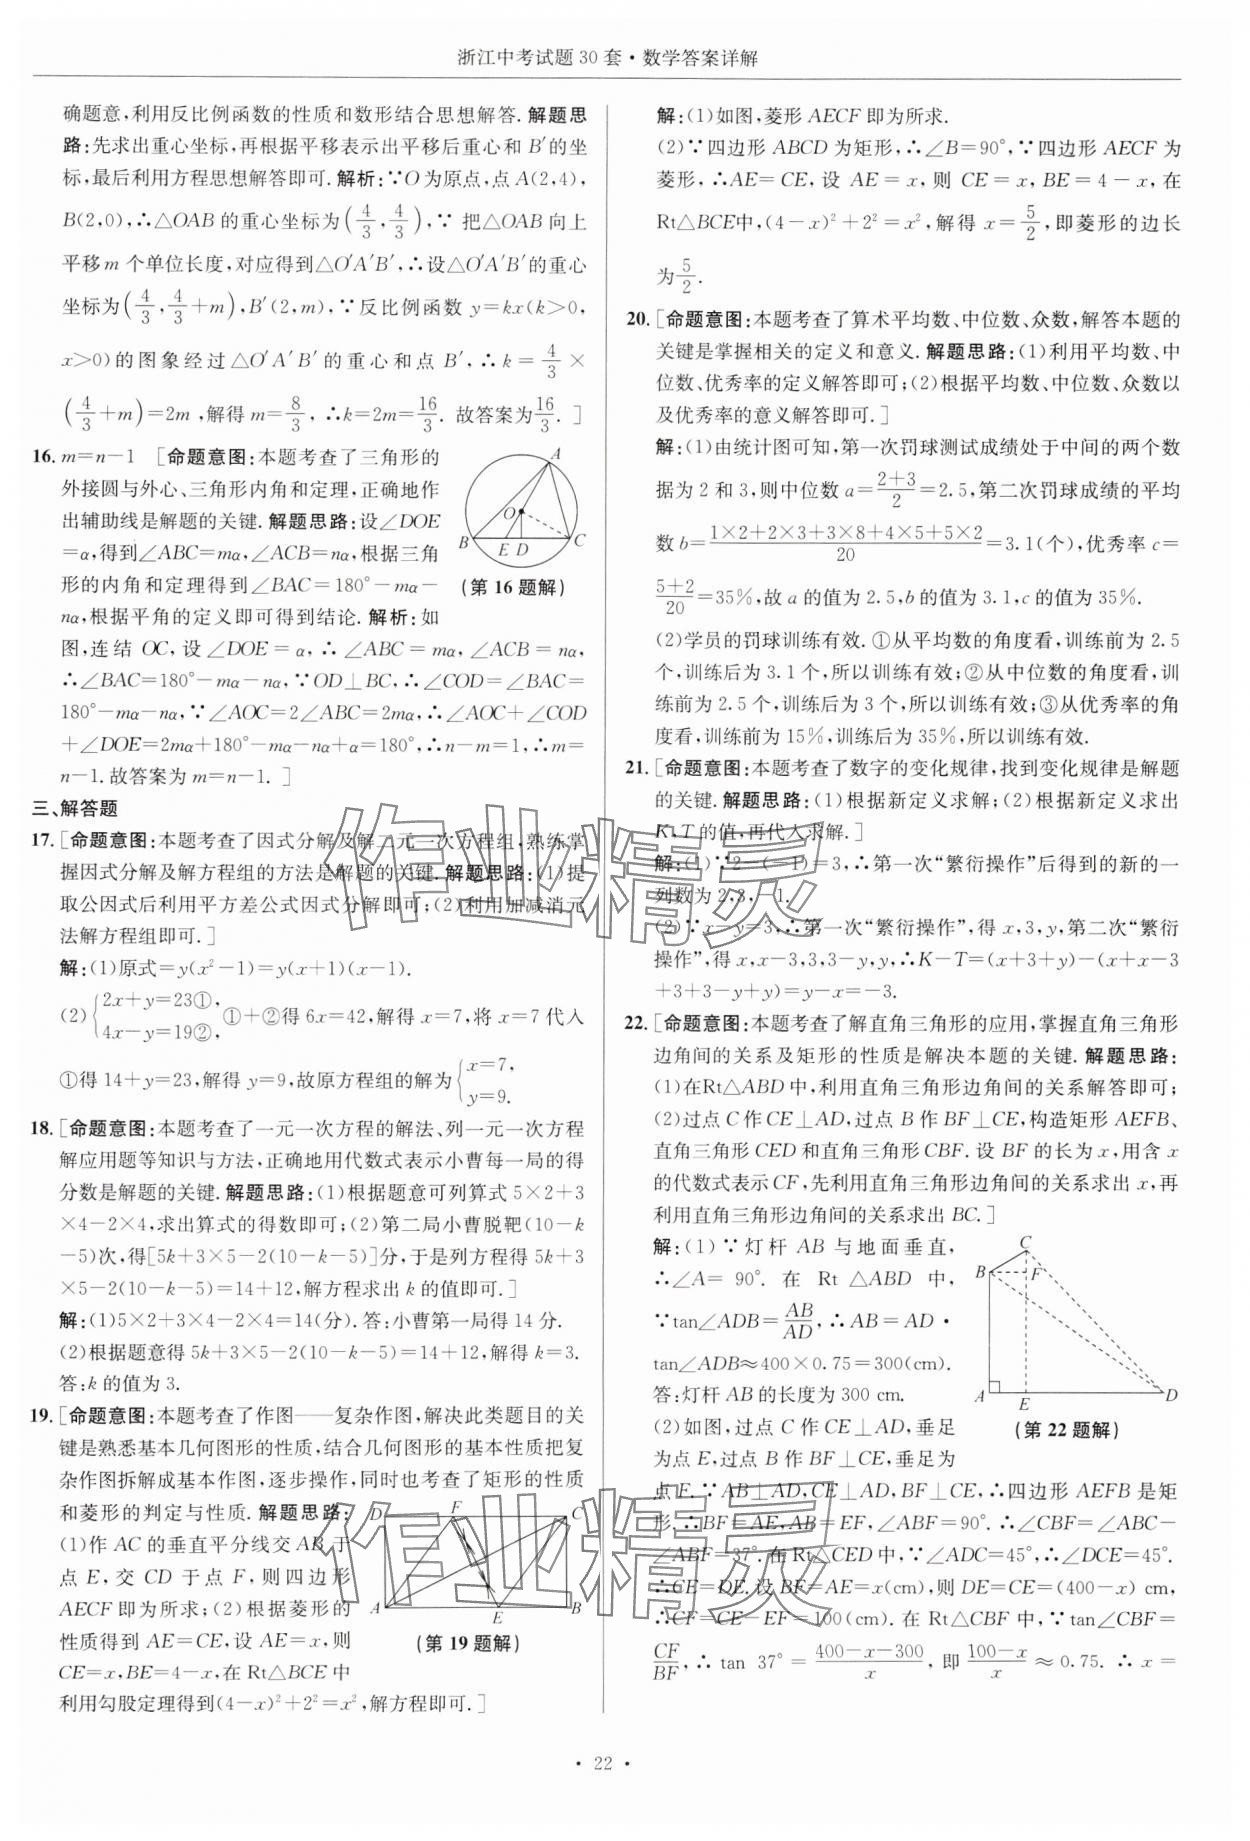 浙江中考试题30套·数学答案详解
确题意,利用反比例函数的性质和数形结合思想解答. 解题思
路:先求出重心坐标,再根据平移表示出平移后重心和B′的坐
标,最后利用方程思想解答即可. 解析:∵O为原点,点A(2,4),
B(2,0),∴△OAB的重心坐标为(4/3,4/3),∵把△OAB向上
平移m个单位长度,对应得到△O′A′B′,∴设△O′A′B′的重心
坐标为(4/3,4/3+m),B′(2,m),∵反比例函数y=kx(k>0,
x>0)的图象经过△O′A′B′的重心和点B′,∴k=4/3×
(4/3+m)=2m,解得m=8/3,∴k=2m=16/3. 故答案为16/3. ]
16. m=n−1 [命题意图:本题考查了三角形的
外接圆与外心、三角形内角和定理,正确地作
出辅助线是解题的关键. 解题思路:设∠DOE
=α,得到∠ABC=mα,∠ACB=nα,根据三角
形的内角和定理得到∠BAC=180°−mα−
nα,根据平角的定义即可得到结论. 解析:如
图,连结OC,设∠DOE=α,∴∠ABC=mα,∠ACB=nα,
∴∠BAC=180°−mα−nα,∵OD⊥BC,∴∠COD=∠BAC=
180°−mα−nα,∵∠AOC=2∠ABC=2mα,∴∠AOC+∠COD
+∠DOE=2mα+180°−mα−nα+α=180°,∴n−m=1,∴m=
n−1.故答案为m=n−1. ]
A
O
B
E D
C
(第16题解)
三、解答题
17. [命题意图:本题考查了因式分解及解二元一次方程组,熟练掌
握因式分解及解方程组的方法是解题的关键. 解题思路:(1)提
取公因式后利用平方差公式因式分解即可;(2)利用加减消元
法解方程组即可. ]
解:(1)原式=y(x²−1)=y(x+1)(x−1).
(2){2x+y=23①, 4x−y=19②,①+②得6x=42,解得x=7,将x=7代入
①得14+y=23,解得y=9,故原方程组的解为{x=7, y=9.
18. [命题意图:本题考查了一元一次方程的解法、列一元一次方程
解应用题等知识与方法,正确地用代数式表示小曹每一局的得
分数是解题的关键. 解题思路:(1)根据题意可列算式5×2+3
×4−2×4,求出算式的得数即可;(2)第二局小曹脱靶(10−k
−5)次,得[5k+3×5−2(10−k−5)]分,于是列方程得5k+3
×5−2(10−k−5)=14+12,解方程求出k的值即可. ]
解:(1)5×2+3×4−2×4=14(分). 答:小曹第一局得14分.
(2)根据题意得5k+3×5−2(10−k−5)=14+12,解得k=3.
答:k的值为3.
19. [命题意图:本题考查了作图——复杂作图,解决此类题目的关
键是熟悉基本几何图形的性质,结合几何图形的基本性质把复
杂作图拆解成基本作图,逐步操作,同时也考查了矩形的性质
和菱形的判定与性质. 解题思路:
(1)作AC的垂直平分线交AB于
点E,交CD于点F,则四边形
AECF即为所求;(2)根据菱形的
性质得到AE=CE,设AE=x,则
CE=x,BE=4−x,在Rt△BCE中
利用勾股定理得到(4−x)²+2²=x²,解方程即可. ]
D
F
C
A
E
B
(第19题解)
解:(1)如图,菱形AECF即为所求.
(2)∵四边形ABCD为矩形,∴∠B=90°,∵四边形AECF为
菱形,∴AE=CE,设AE=x,则CE=x,BE=4−x,在
Rt△BCE中,(4−x)²+2²=x²,解得x=5/2,即菱形的边长
为5/2.
20. [命题意图:本题考查了算术平均数、中位数、众数,解答本题的
关键是掌握相关的定义和意义. 解题思路:(1)利用平均数、中
位数、优秀率的定义解答即可;(2)根据平均数、中位数、众数以
及优秀率的意义解答即可. ]
解:(1)由统计图可知,第一次罚球测试成绩处于中间的两个数
据为2和3,则中位数a=(2+3)/2=2.5,第二次罚球成绩的平均
数b=(1×2+2×3+3×8+4×5+5×2)/20=3.1(个),优秀率c=
(5+2)/20=35%,故a的值为2.5,b的值为3.1,c的值为35%.
(2)学员的罚球训练有效. ①从平均数的角度看,训练前为2.5
个,训练后为3.1个,所以训练有效;②从中位数的角度看,训
练前为2.5个,训练后为3个,所以训练有效;③从优秀率的角
度看,训练前为15%,训练后为35%,所以训练有效.
21. [命题意图:本题考查了数字的变化规律,找到变化规律是解题
的关键. 解题思路:(1)根据新定义求解;(2)根据新定义求出
K,T的值,再代入求解. ]
解:(1)∵2−(−1)=3,∴第一次“繁衍操作”后得到的新的一
列数为2,3,−1.
(2)∵x−y=3,∴第一次“繁衍操作”,得x,3,y,第二次“繁衍
操作”,得x,x−3,3,3−y,y,∴K−T=(x+3+y)−(x+x−3
+3+3−y+y)=y−x=−3.
22. [命题意图:本题考查了解直角三角形的应用,掌握直角三角形
边角间的关系及矩形的性质是解决本题的关键. 解题思路:
(1)在Rt△ABD中,利用直角三角形边角间的关系解答即可;
(2)过点C作CE⊥AD,过点B作BF⊥CE,构造矩形AEFB、
直角三角形CED和直角三角形CBF. 设BF的长为x,用含x
的代数式表示CF,先利用直角三角形边角间的关系求出x,再
利用直角三角形边角间的关系求出BC. ]
解:(1)∵灯杆AB与地面垂直,
∴∠A=90°. 在Rt△ABD中,
∵tan∠ADB=AB/AD,∴AB=AD·
tan∠ADB≈400×0.75=300(cm).
答:灯杆AB的长度为300 cm.
(2)如图,过点C作CE⊥AD,垂足
为点E,过点B作BF⊥CE,垂足为
点F.∵AB⊥AD,CE⊥AD,BF⊥CE,∴四边形AEFB是矩
形,∴BF=AE,AB=EF,∠ABF=90°.∴∠CBF=∠ABC−
∠ABF=37°.在Rt△CED中,∵∠ADC=45°,∴∠DCE=45°.
∴CE=DE.设BF=AE=x(cm),则DE=CE=(400−x)cm.
∴CF=CE−EF=(100−x)cm. 在Rt△CBF中,∵tan∠CBF=
CF/BF,∴tan 37°=(400−x−300)/x,即(100−x)/x≈0.75. ∴x=
C
B
F
A
E
D
(第22题解)
作业精灵
作业精灵
· 22 ·